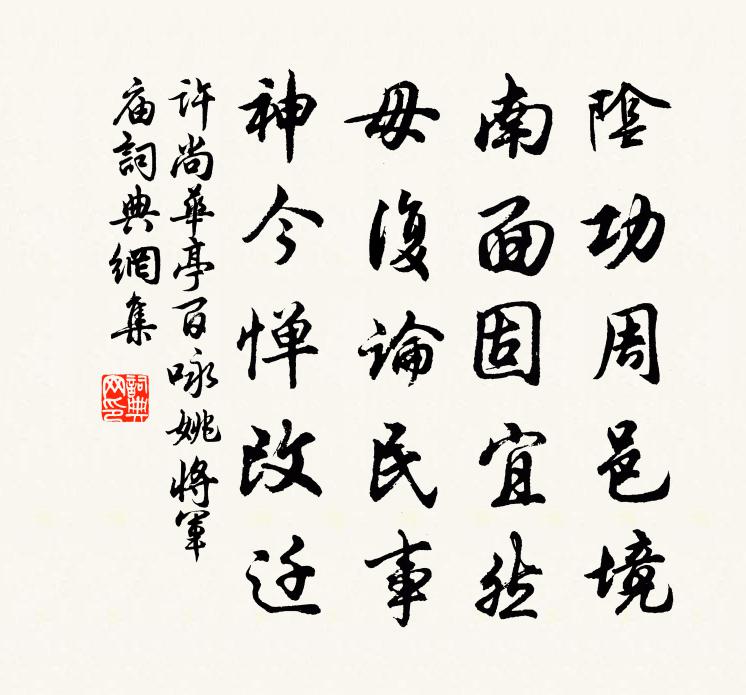 陰功周邑境
南面固宜然
毋復論民事
神今惮改迁
許尚華亭百咏姚將軍
庙詞典網集
詞典网印